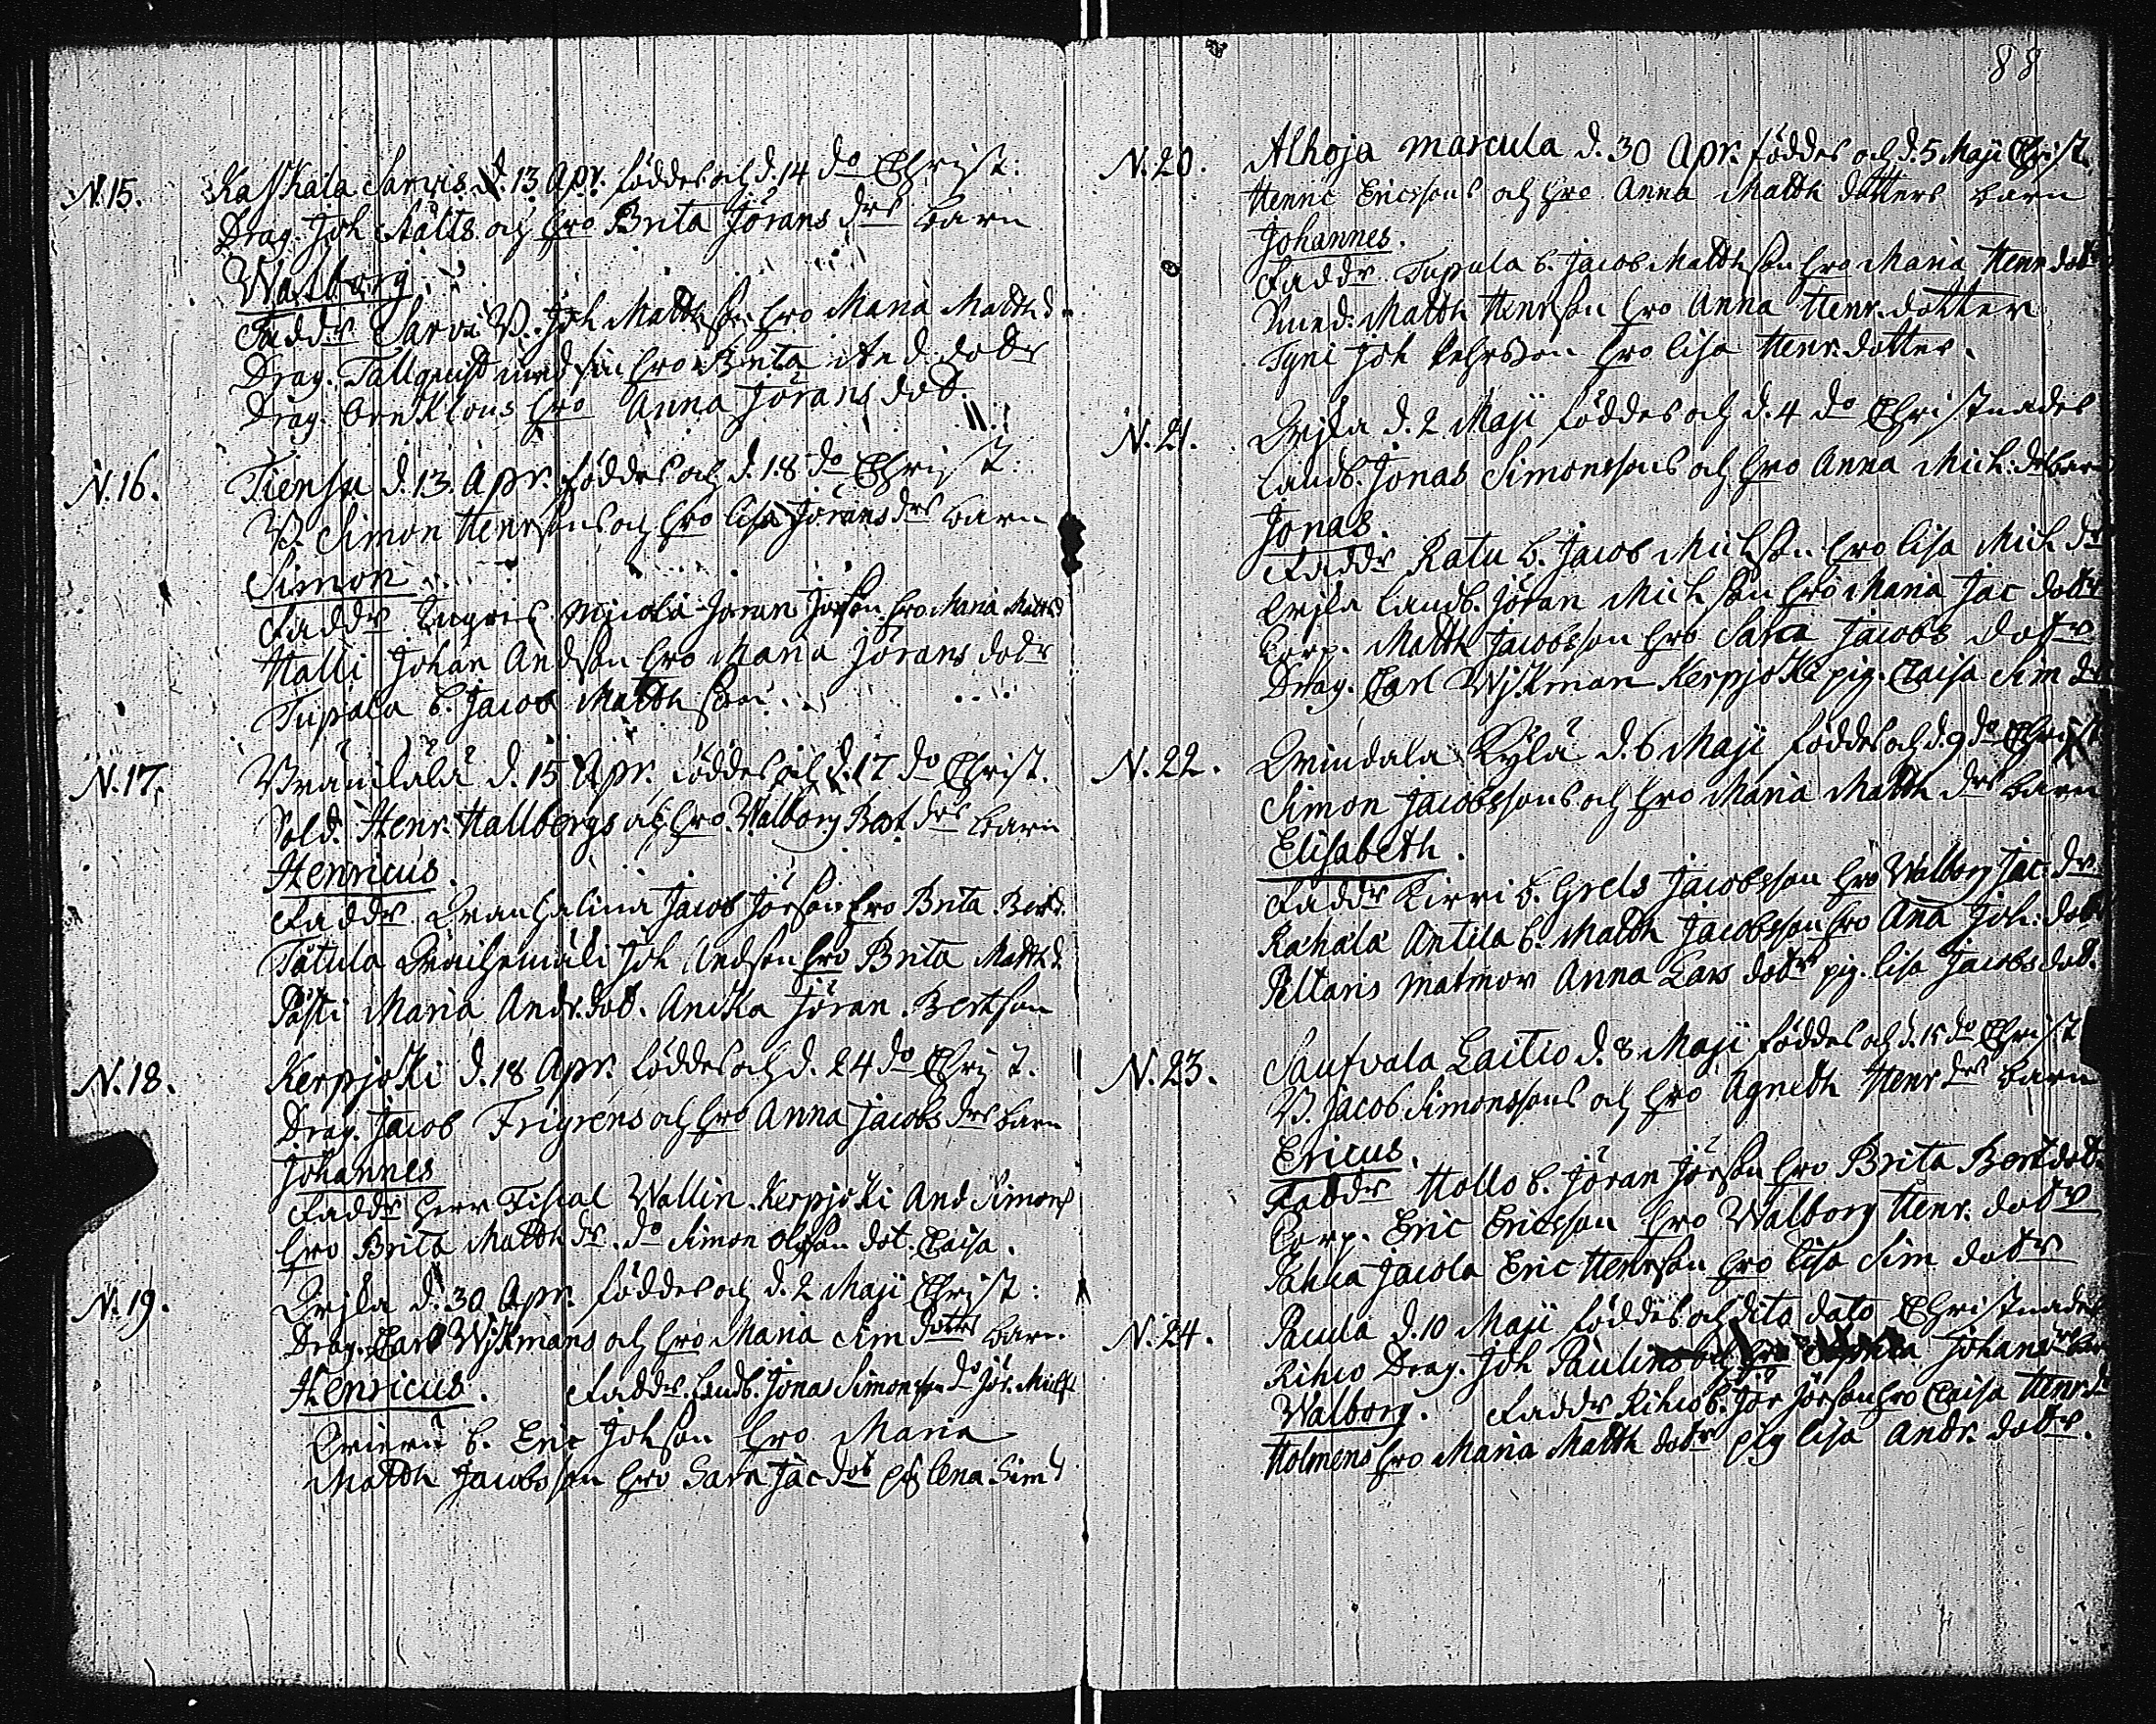 N.15. Kaskala Sarvis d. 13 Apr. föddes och d. 14 do Christ:
Drag. Joh Stålts och hro Brita Jörans drs barn
Walborg.
Faddr Sarvi B. Joh Matthson hro Maria Matth d.
Drag. Tallquist med sin hro Brita And. dotr
Drag. Örnklous hro Anna Jörans dot.
N.16. Tiensu d. 13. Apr. föddes och d. 18 do Christ:
B. Simon Henrsons och hro Lisa Jörans drs barn
Simon
Faddr Jöran Jörson hro Maria Matts d
Halli Johan Andson hro Maria Jörans dotr
Tupala b. Jacob Matthson
N.17. d. 15 Apr. föddes och d. 17 do Christ.
Sold. Henr. Hallbergs och hro Walborg Bert drs barn
Henricus.
Faddr Jacob Jörson hro Brita Bert d.
Tåtula Joh Andson hro Brita Matth d.
Påsti Maria Andr. dot. Anska Jöran Bertson
N.18. Kerpjoki d. 18 Apr. föddes och d. 24 do Christ.
Drag. Jacob Frigrens och hro Anna Jacobs drs barn
Johannes
Faddr herr Fiscal Wallin. Kerpjoki And Simons
hro Brita Matth dr. do Simon Olofson dot. Caisa.
N.19. d. 30 Apr. föddes och d. 2 Maji Christ:
Drag. Carl Wijkmans och hro Maria Sim dotters barn.
Henricus. Faddr. Landb. Jonas Simonsson do Jör. Michs
b. Eric Johson hro Maria
Matth Jacobsson hro Sara Jac dotr pig Lena Sim d
88
N.20. Alhoja marcula d. 30 Apr. föddes och d. 5 Maji Christ.
Henric Ericssons och hro Anna Matth dotters barn
Johannes.
Faddr Tupala b. Jacob Matthson hro Maria Henr dotr
Matth Henrson hro Anna Henr. dotter
Tyni Joh Pehrsson hro Lisa Henr. dotter.
N.21. d. 2 Maji föddes och d. 4 do Christnades
Landb. Jonas Simonssons och hro Anna Mich. drs barn
Jonas.
Faddr Ratu b. Jacob Michson hro Lisa Mich dr
Landb. Jöran Michson hro Maria Jac dotr
Corp. Matth Jacobsson hro Sara Jacobs dotr
Drag. Carl Wijkman Kerpjoki pig. Caisa Sim dr
N.22. Kylä d. 6 Maji föddes och d. 9 do Christ
Simon Jacobssons och hro Maria Matth drs barn
Elisabeth.
Faddr Kirri b. Grels Jacobsson hro Walborg Jac. dr
Rahala Antila b. Matth Jacobsson hro Ana Joh. dotr
Peltaris matmor Anna Lars dotr pig. Lisa Jacobs dot.
N.23. Saufvala Laitio d. 8 Maji föddes och d. 15 do Christ
B. Jacob Simonssons och hro Agneth Henr drs barn
Ericus.
Faddr Hollo b. Jöran Jörson hro Brita Bert dot.
Corp. Eric Ericsson hro Walborg Henr. dotr
Jacola Eric Henrson hro Lisa Sim dotr
N.24. Pacula d. 10 Maji föddes och dito dato Christnades
Rihio Drag. Joh Paulins och hro Johans drs barn
Walborg. Faddr Rihio b. Jör Jörson hro Caisa Henr. d
Holmens hro Maria Matth dotr pig Lisa Andr. dotr.